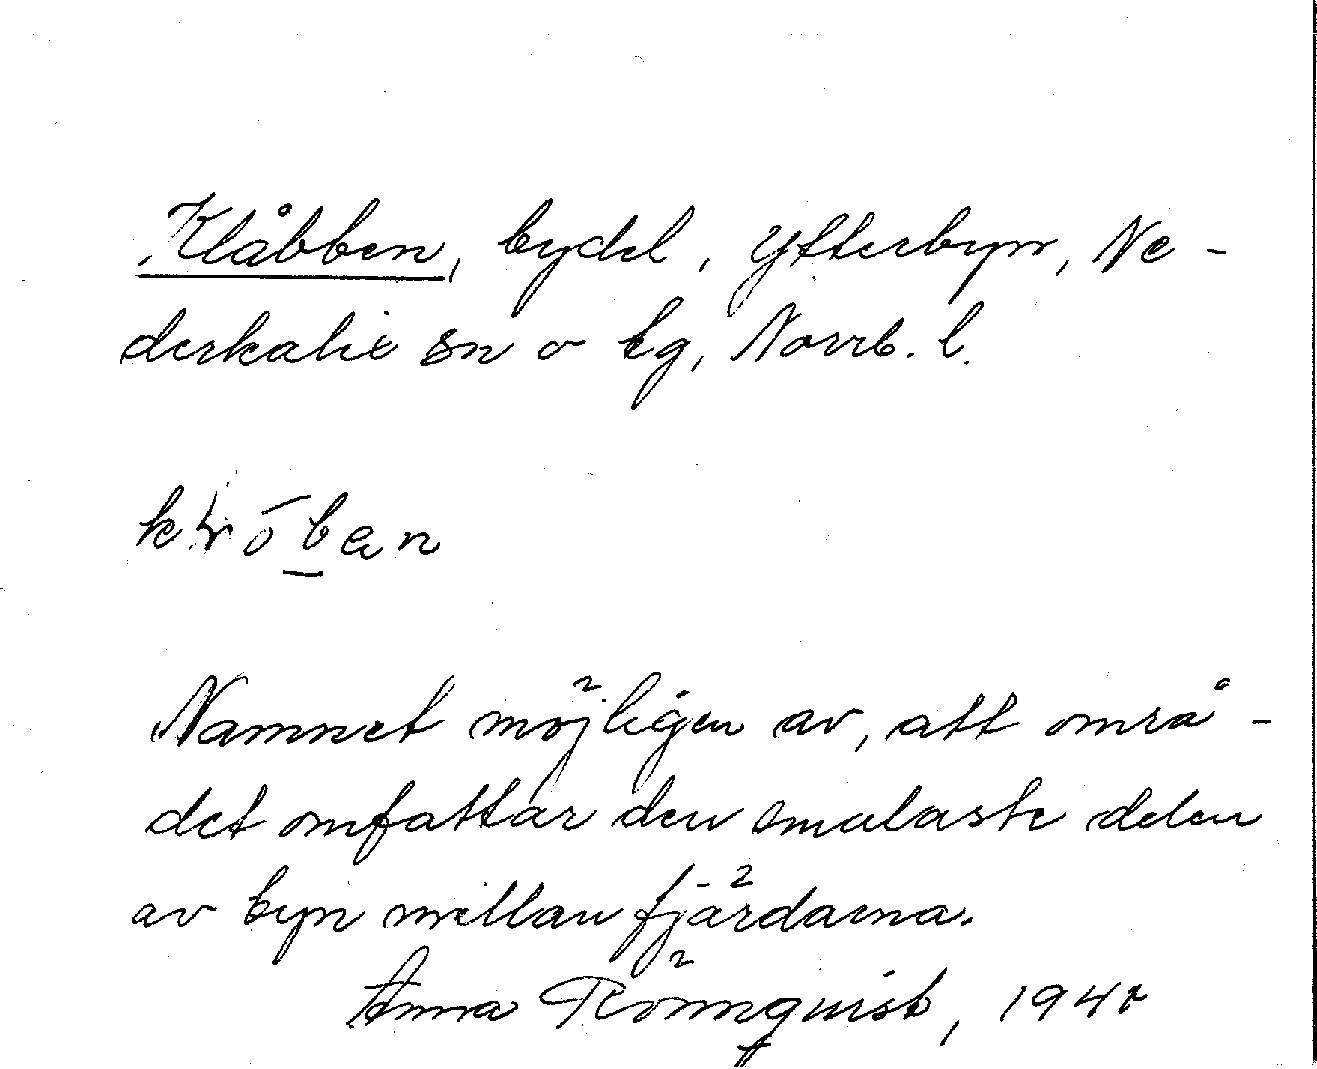 Klåbben, bydel, Ytterbyn, Ne-
derkalix sn o tg, Norrb. l.
Namnet möjligen av, att områ-
det omfattar den smalaste delen
av byn mellan fjärdarna.
Anna Rönnquist,